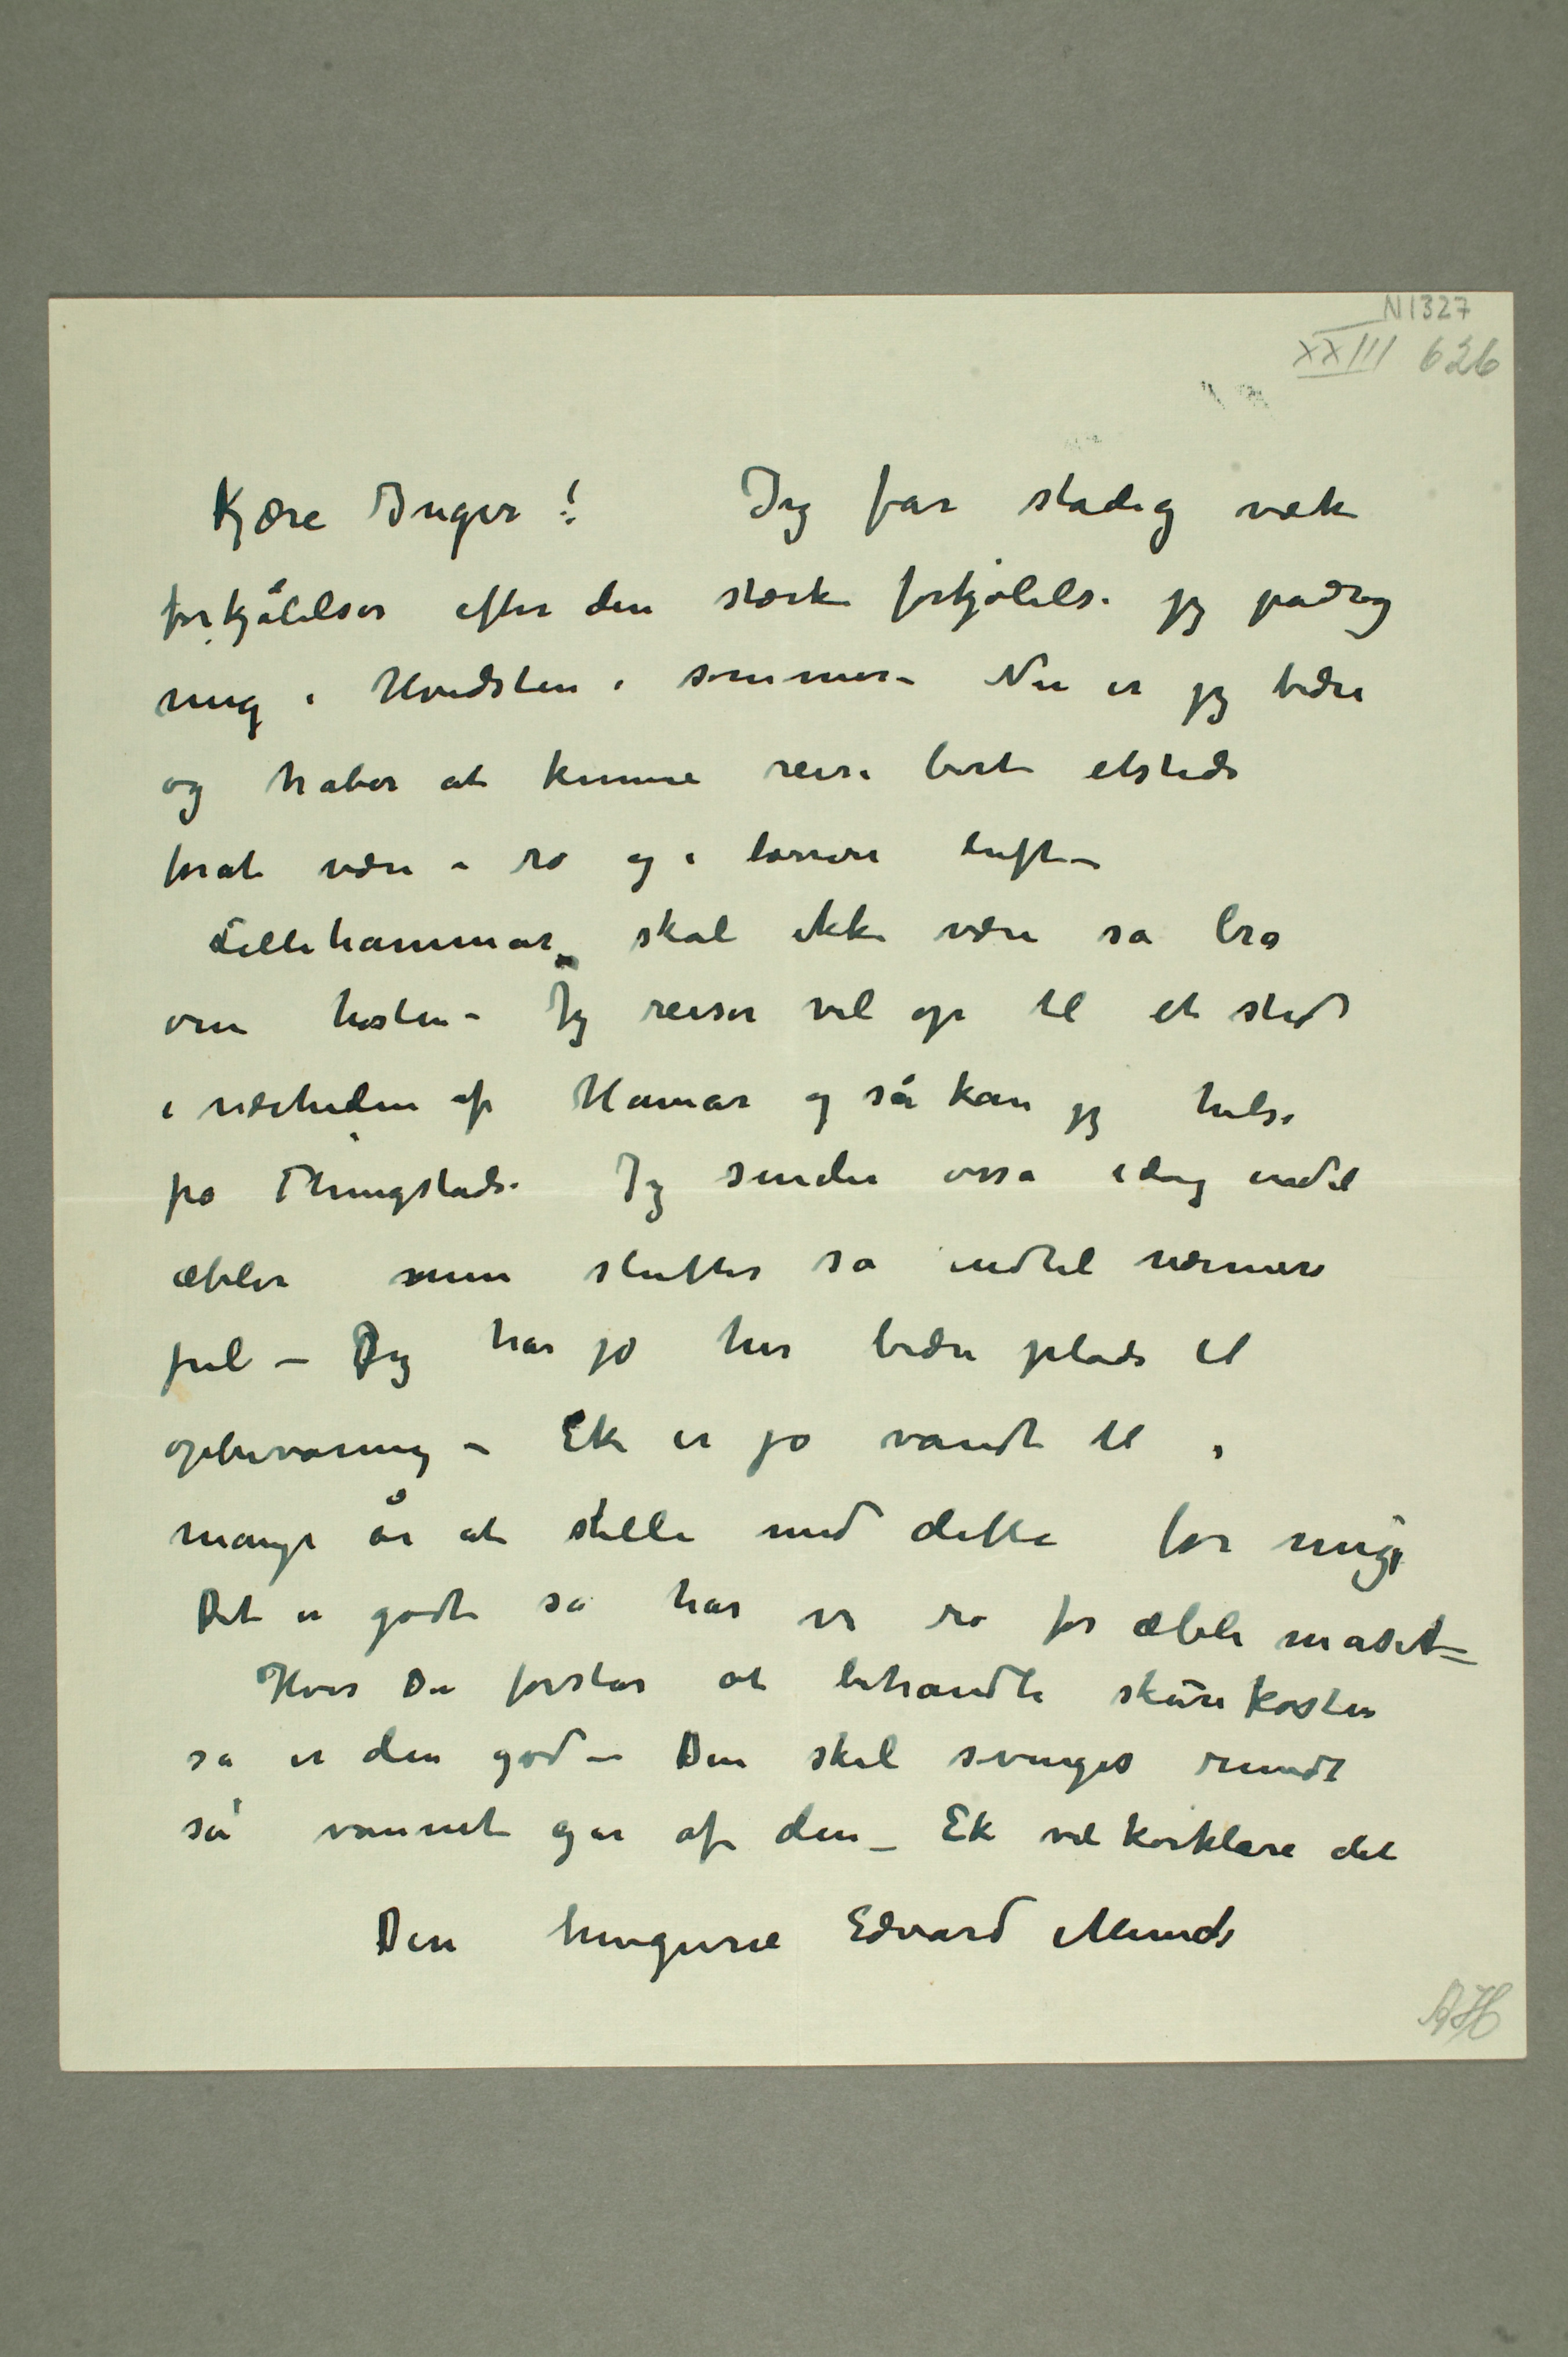 N 1327
XXIII 626
Kjære Inger! Jeg får stadig væk
forkjølelser efter den stærke forkjølelse jeg pådrog
mig i Hvidsten i sommer – Nu er jeg bedre
og håber at kunne reise bort etsteds
forat være i ro og i tørrere luft –
Lillehammer skal ikke være så bra
om høsten – Jeg reiser vel op til et sted
i nærheden af Hamar og så kan jeg hilse
på Thingstads. Jeg sender også idag endel
æbler men slutter så indtil nærmere
ful – Jeg har jo her bedre plads til
opbevaring – Ek er jo vandt til i
mange år at stelle med dette for mig
Det er godt så har vi ro for æble maset –
Hvis Du forstår at behandle skurekosten
så er den god – Den skal svinges rundt
så vannet går af den – Ek vil forklare det
Din hengivne Edvard Munch
AH